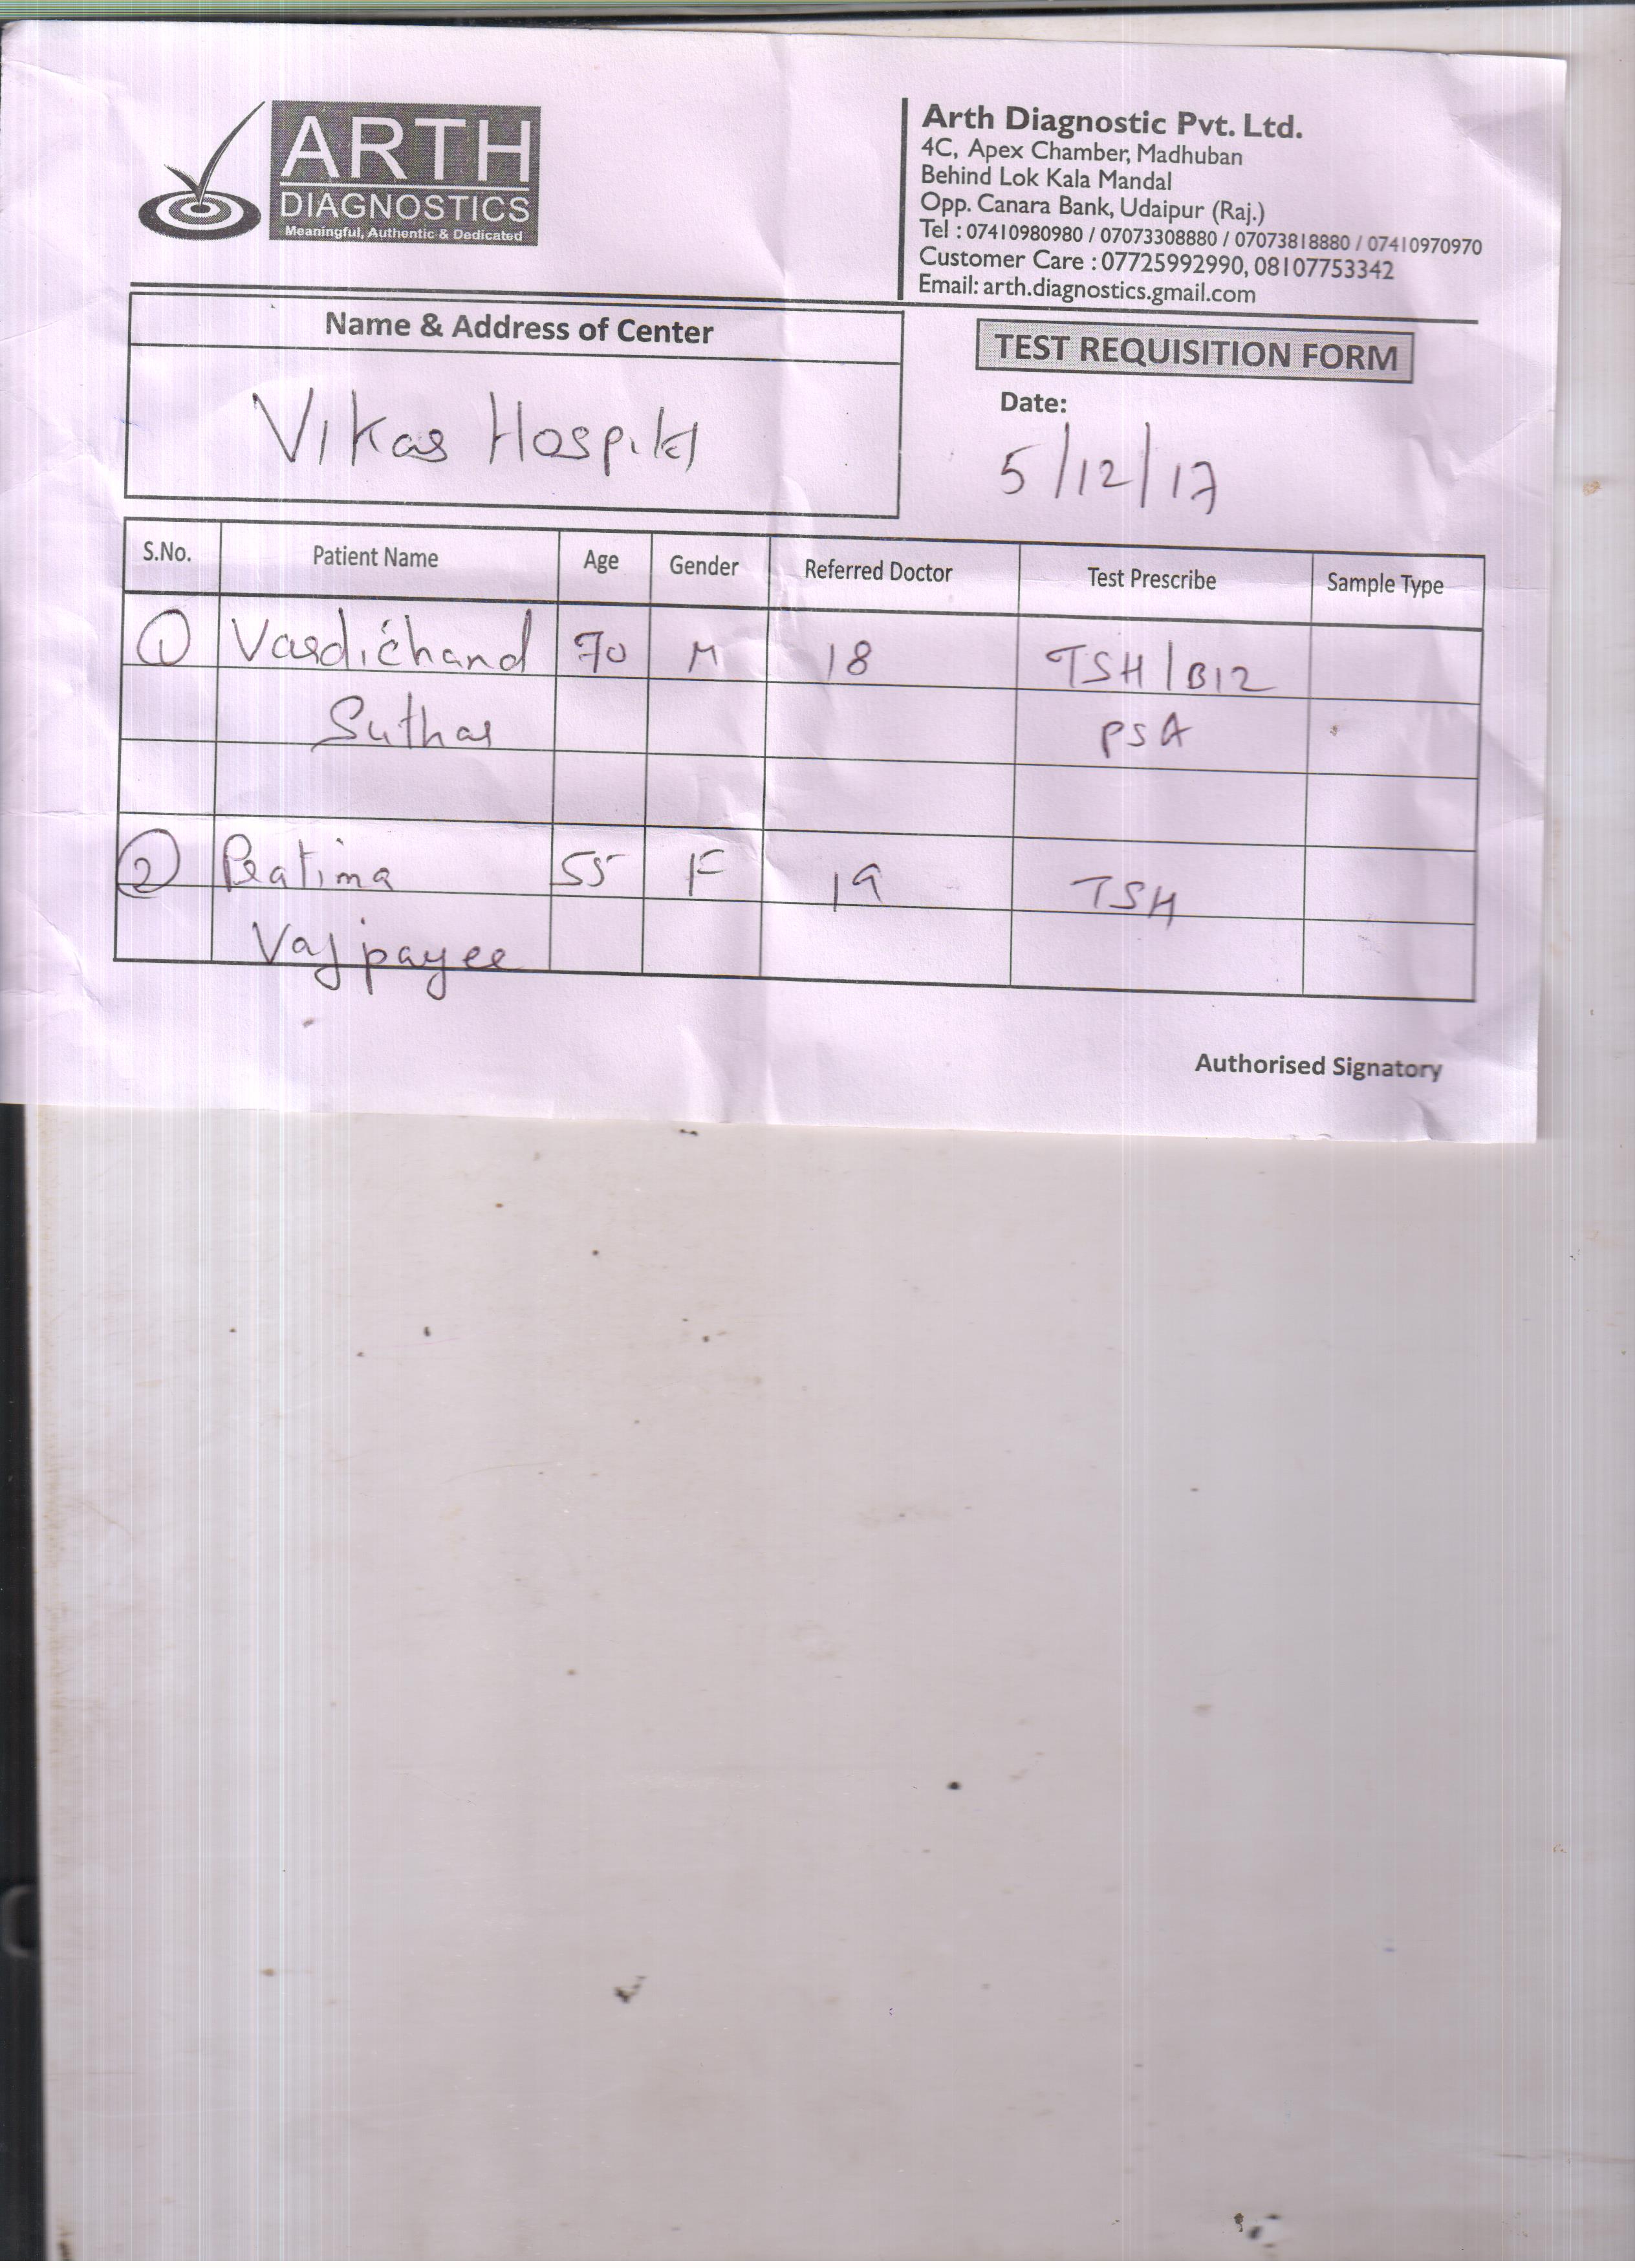 ARTH
DIAGNOSTICS
Meaningful, Authentic & Dedicated
Arth Diagnostic Pvt. Ltd.
4C, Apex Chamber, Madhuban
Behind Lok Kala Mandal
Opp. Canara Bank, Udaipur (Raj.)
Tel : 07410980980 / 07073308880 / 07073818880 / 07410970970
Customer Care : 07725992990, 08107753342
Email: arth.diagnostics.gmail.com
Name & Address of Center
Vikas Hospital
TEST REQUISITION FORM
Date:
5/12/17
S.No. Patient Name Age Gender Referred Doctor Test Prescribe Sample Type
1 Vardichand 70 M 18 TSH/B12
Suthar PSA
2 Pratima 55 F 19 TSH
Vajpayee
Authorised Signatory